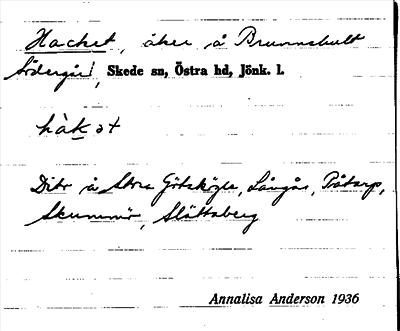 Hacket, åker å Brunnshult
Södergård, Skede sn, Östra hd, Jönk. l.
hàkət
Dito å Stora Götsköp, Lövås, Påtorp,
Skummör, Slättaberg
Annalisa Anderson 1936